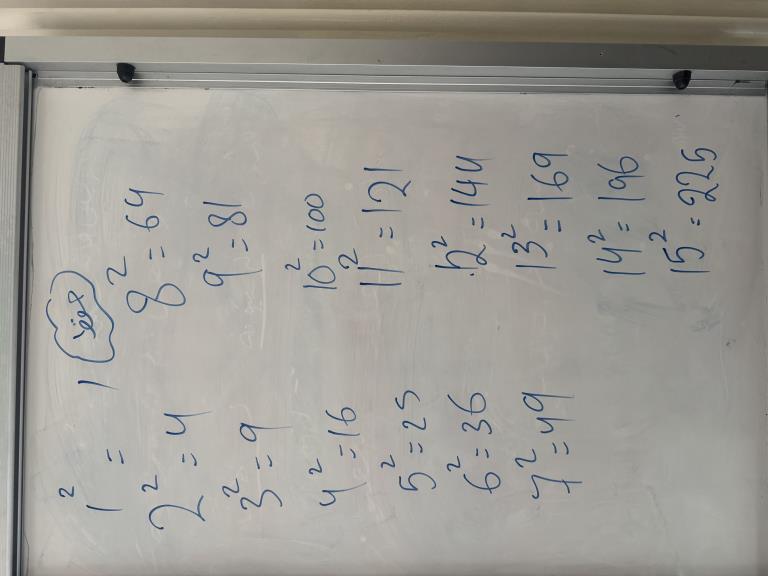 حفظ
1² = 1
2² = 4
3² = 9
4² = 16
5² = 25
6² = 36
7² = 49
8² = 64
9² = 81
10² = 100
11² = 121
12² = 144
13² = 169
14² = 196
15² = 225